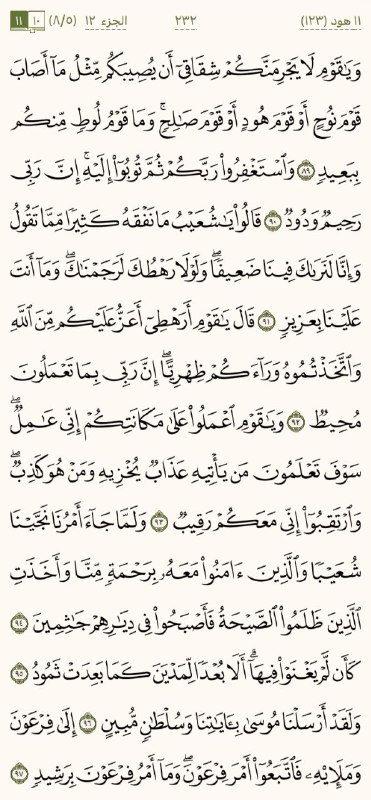 ١١ هود (١٢٣) ٢٣٢ الجزء ١٢ (٨/٥) ١٠ ١١
وَيَٰقَوْمِ لَا يَجْرِمَنَّكُمْ شِقَاقِىٓ أَن يُصِيبَكُم مِّثْلُ مَآ أَصَابَ
قَوْمَ نُوحٍ أَوْ قَوْمَ هُودٍ أَوْ قَوْمَ صَٰلِحٍ ۚ وَمَا قَوْمُ لُوطٍ مِّنكُم
بِبَعِيدٍ ٨٩ وَٱسْتَغْفِرُوا۟ رَبَّكُمْ ثُمَّ تُوبُوٓا۟ إِلَيْهِ ۚ إِنَّ رَبِّى
رَحِيمٌ وَدُودٌ ٩٠ قَالُوا۟ يَٰشُعَيْبُ مَا نَفْقَهُ كَثِيرًا مِّمَّا تَقُولُ
وَإِنَّا لَنَرَىٰكَ فِينَا ضَعِيفًا ۖ وَلَوْلَا رَهْطُكَ لَرَجَمْنَٰكَ ۖ وَمَآ أَنتَ
عَلَيْنَا بِعَزِيزٍ ٩١ قَالَ يَٰقَوْمِ أَرَهْطِىٓ أَعَزُّ عَلَيْكُم مِّنَ ٱللَّهِ
وَٱتَّخَذْتُمُوهُ وَرَآءَكُمْ ظِهْرِيًّا ۖ إِنَّ رَبِّى بِمَا تَعْمَلُونَ
مُحِيطٌ ٩٢ وَيَٰقَوْمِ ٱعْمَلُوا۟ عَلَىٰ مَكَانَتِكُمْ إِنِّى عَٰمِلٌ ۖ
سَوْفَ تَعْلَمُونَ مَن يَأْتِيهِ عَذَابٌ يُخْزِيهِ وَمَنْ هُوَ كَٰذِبٌ ۖ
وَٱرْتَقِبُوٓا۟ إِنِّى مَعَكُمْ رَقِيبٌ ٩٣ وَلَمَّا جَآءَ أَمْرُنَا نَجَّيْنَا
شُعَيْبًا وَٱلَّذِينَ ءَامَنُوا۟ مَعَهُۥ بِرَحْمَةٍ مِّنَّا وَأَخَذَتِ
ٱلَّذِينَ ظَلَمُوا۟ ٱلصَّيْحَةُ فَأَصْبَحُوا۟ فِى دِيَٰرِهِمْ جَٰثِمِينَ ٩٤
كَأَن لَّمْ يَغْنَوْا۟ فِيهَآ ۗ أَلَا بُعْدًا لِّمَدْيَنَ كَمَا بَعِدَتْ ثَمُودُ ٩٥
وَلَقَدْ أَرْسَلْنَا مُوسَىٰ بِـَٔايَٰتِنَا وَسُلْطَٰنٍ مُّبِينٍ ٩٦ إِلَىٰ فِرْعَوْنَ
وَمَلَإِي۟هِۦ فَٱتَّبَعُوٓا۟ أَمْرَ فِرْعَوْنَ ۖ وَمَآ أَمْرُ فِرْعَوْنَ بِرَشِيدٍ ٩٧